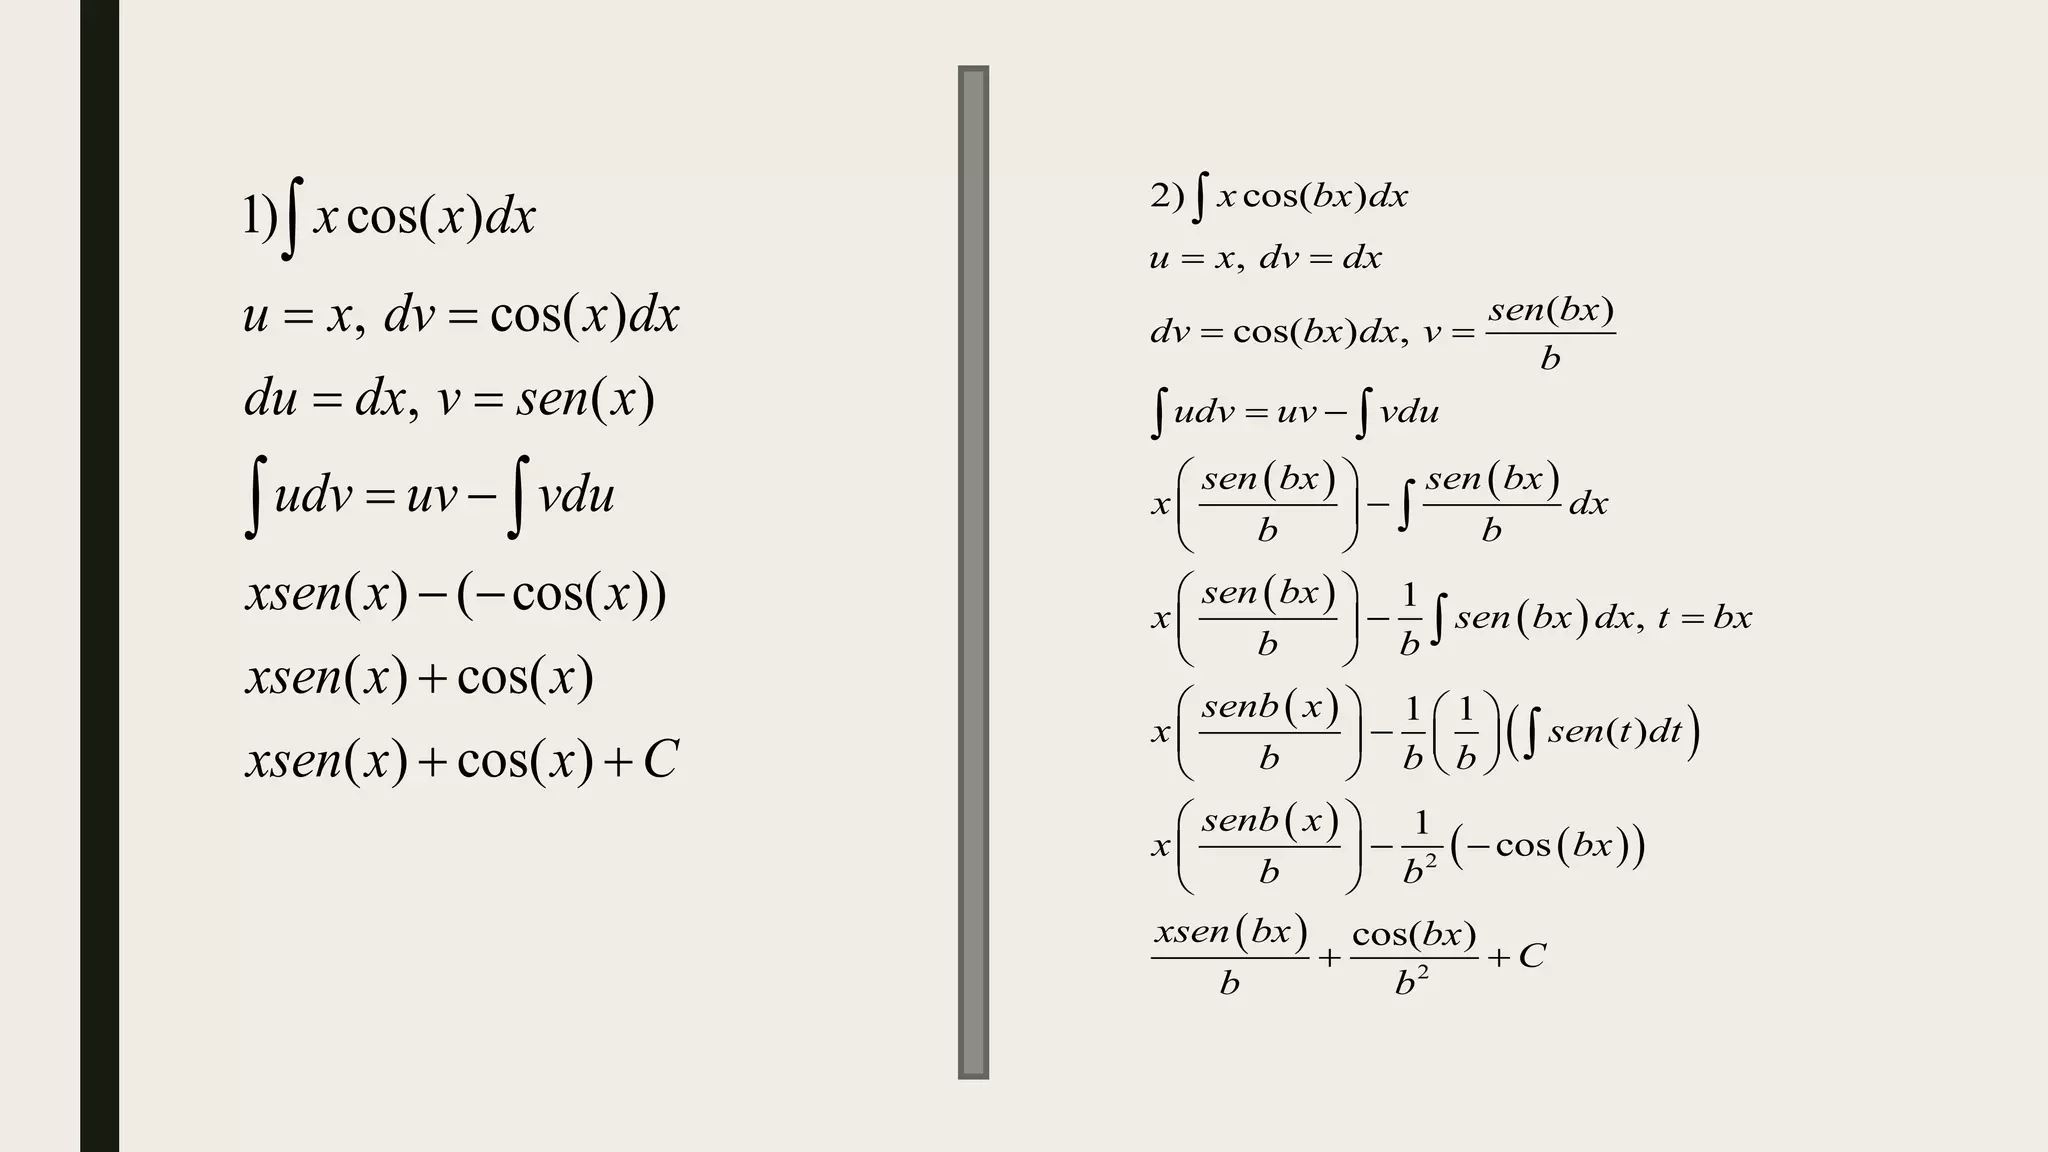 1)∫ x cos(x)dx
u = x, dv = cos(x)dx
du = dx, v = sen(x)
∫ udv = uv − ∫ vdu
xsen(x) − (−cos(x))
xsen(x) + cos(x)
xsen(x) + cos(x) + C
2)∫ x cos(bx)dx
u = x, dv = dx
dv = cos(bx)dx, v = sen(bx)/b
∫ udv = uv − ∫ vdu
x(sen(bx)/b) − ∫ sen(bx)/b dx
x(sen(bx)/b) − 1/b ∫ sen(bx)dx, t = bx
x(senb(x)/b) − 1/b (1/b)(∫ sen(t)dt)
x(senb(x)/b) − 1/b² (−cos(bx))
xsen(bx)/b + cos(bx)/b² + C